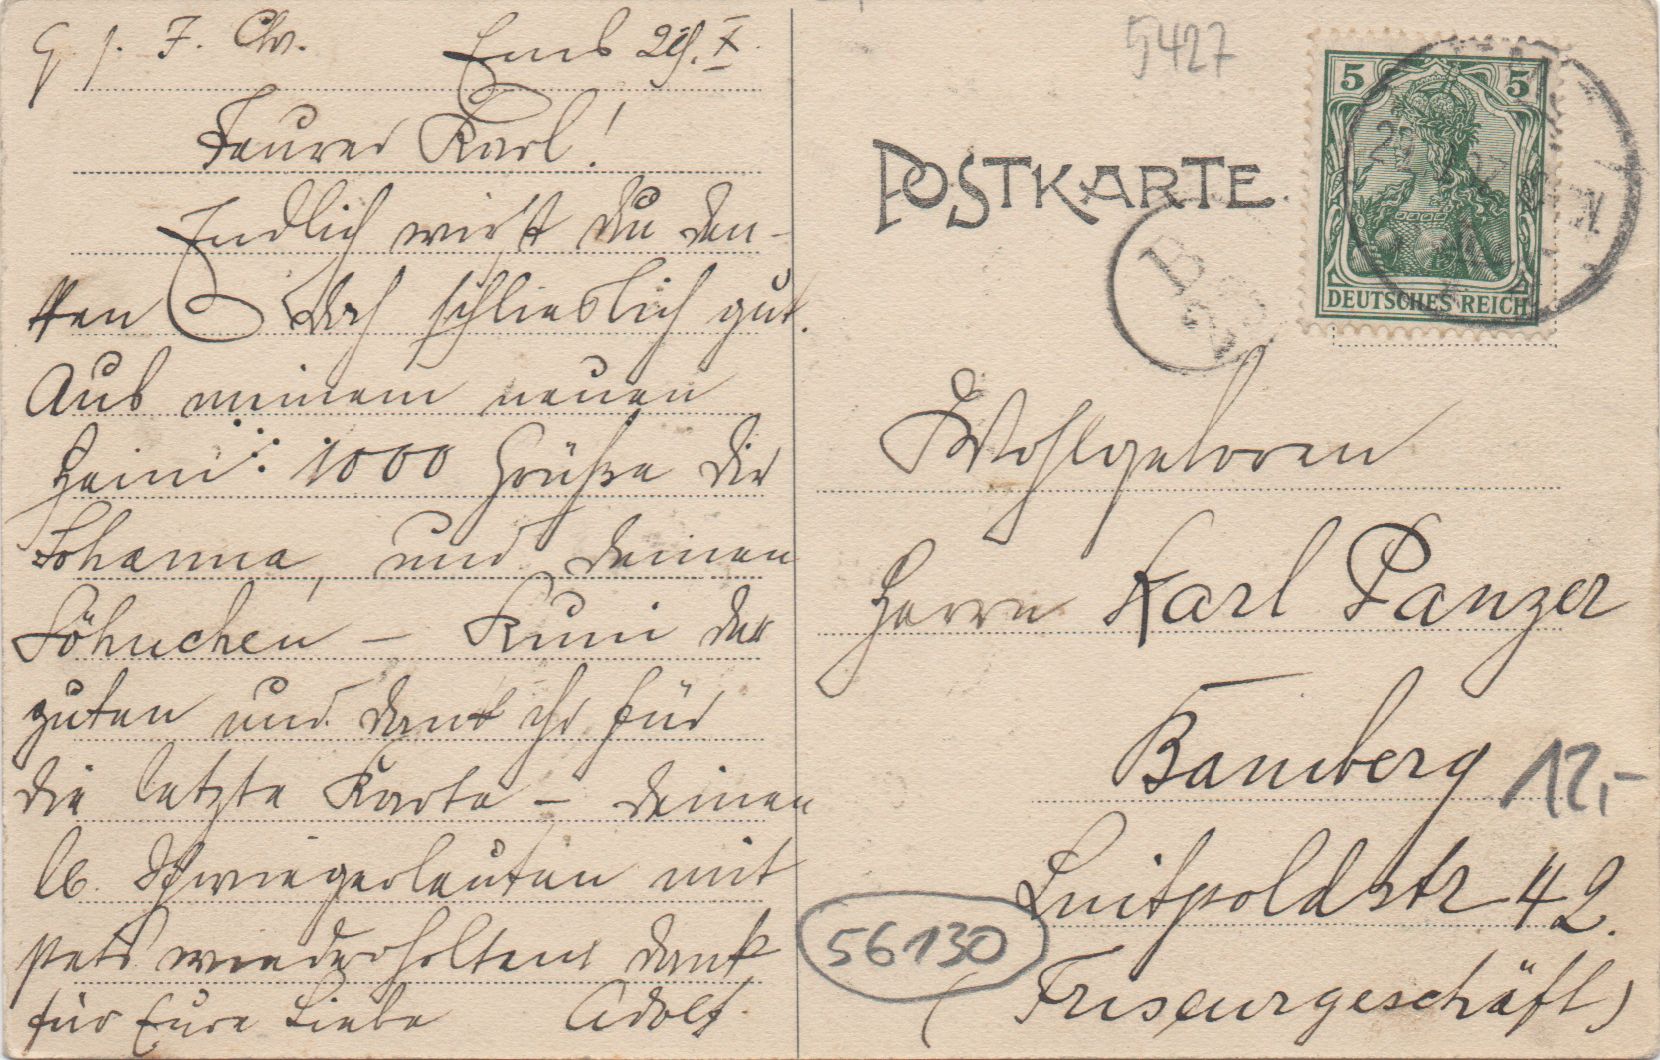 G. s. J. Chr. Ems 29. X.
Teurer Karl!
Endlich wirst du den-
ken doch schlieslich gut.
Aus meinem neuen
Heim: 1000 Grüße Dir
Johanna, und deinen
Söhnchen – Kuni der
guten und dank ihr für
die letzte Karte – deinen
lb. Schwiegerleuten mit
stets wiederholtem Dank
für Eure Liebe Adolf.
5427
POSTKARTE.
5 5
DEUTSCHES REICH
Wohlgeboren
Herrn Karl Panzer
Bamberg
12,-
Luitpoldstr 42.
56130
(Friseurgeschäft)